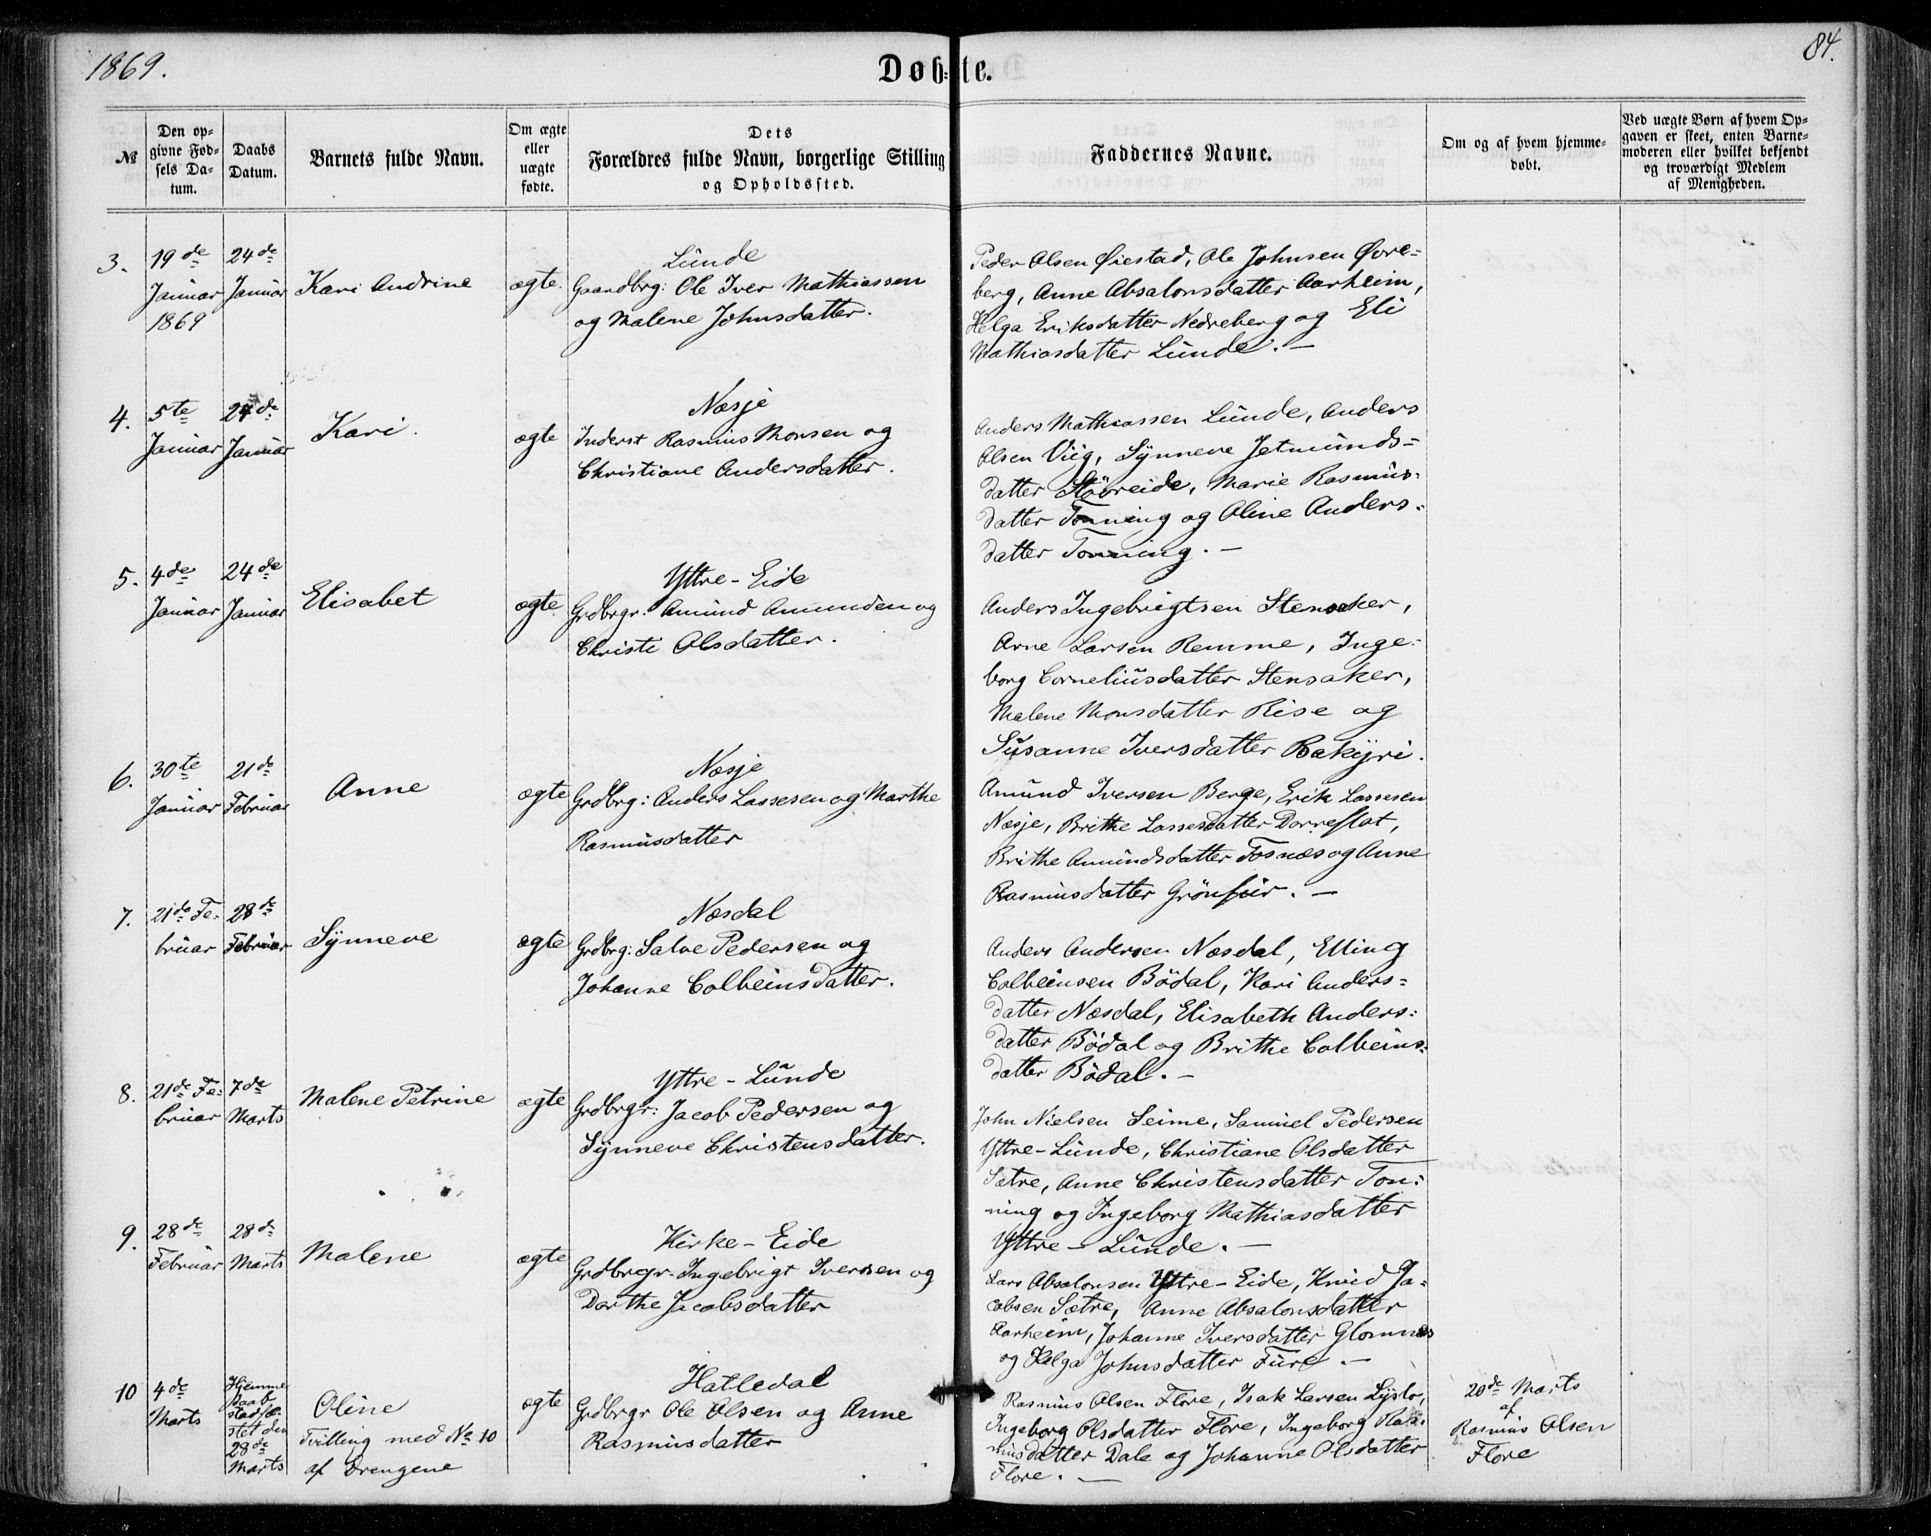 1869.
Døbte.
84.
№
Den opgivne Fødsels Datum.
Daabs Datum.
Barnets fulde Navn.
Om ægte eller uægte fødte.
Dets Forældres fulde Navn, borgerlige Stilling og Opholdssted.
Faddernes Navne.
Om og af hvem hjemmedøbt.
Ved uægte Børn af hvem Opgaven er skeet, enten Barnemoderen eller hvilket bekjendt og troværdigt Medlem af Menigheden.
3.
19de
Januar
1869
24de
Januar
Kari Andrine
ægte.
Lunde
Gaardbrg: Ole Iver Mathiassen
og Malene Johnsdatter.
Peder Olsen Øiestad, Ole Johnsen Øvre-
berg, Anne Absalonsdatter Aarheim,
Helga Eriksdatter Nedreberg og Eli
Mathiasdatter Lunde. —
4.
5te
Januar
24de
Januar
Kari.
ægte
Næsje
Inderst Rasmus Monsen og
Christiane Andersdatter.
Anders Mathiassen Lunde, Anders
Olsen Viig, Synneve Jetmunds-
datter Støvreide, Marie Rasmus-
datter Tonning og Oline Anders-
datter Tonning. —
5.
4de
Januar
24de
Januar
Elisabet
ægte
Yttre-Eide
Grdbrgr: Amund Amunden og
Christi Olsdatter.
Anders Ingebrigtsen Stensaker,
Arne Larsen Remme, Inge-
borg Corneliusdatter Stensaker,
Malene Monsdatter Rise og
Susanne Iversdatter Rakyri.
6.
30te
Januar
21de
Februar
Anne
ægte
Næsje
Grdbrg: Anders Lassesen og Marthe
Rasmusdatter
Amund Iversen Berge, Erik Lassesen
Næsje, Brithe Lassesdatter Dorreflot,
Brithe Amundsdatter Fosnæs og Anne
Rasmusdatter Grönfur. —
7.
21de Fe-
bruar
28de
Februar
Synneve
ægte
Næsdal
Grdbrg: Salve Pedersen og
Johanne Colbeinsdatter.
Anders Andersen Næsdal, Elling
Colbeinsen Bödal, Kari Anders-
datter Næsdal, Elisabeth Anders-
datter Bödal og Brithe Colbeins-
datter Bödal. —
8.
21de Fe-
bruar
7de
Marts
Malene Petrine
ægte
Yttre-Lunde
Grdbrgr: Jacob Pedersen og
Synneve Christensdatter.
John Nielsen Seime, Samuel Pedersen
Yttre-Lunde, Christiane Olsdatter
Sætre, Anne Christensdatter Ton-
ning og Ingeborg Mathiasdatter
Yttre-Lunde. —
9.
28de
Februar
28de
Marts
Malene
ægte
Kirke-Eide
Grdbrgr. Ingebrigt Iversen og
Dorthe Jacobsdatter
Lars Absalonsen Yttre-Eide, Knud Ja-
cobsen Sætre, Anne Absalonsdatter
Aarheim, Johanne Iversdatter Glomnes
og Helga Johnsdatter Fure. —
10
4de
Marts
Hjemme
daab
stadfæ-
stet den
28de
Marts
Oline
Tvilling med No 10
af Drengene
ægte
Hatledal
Grdbrgr Ole Olsen og Anne
Rasmusdatter
Rasmus Olsen Flore, Isak Larsen Lyslo,
Ingeborg Olsdatter Flore, Ingeborg Ras-
musdatter Dale og Johanne Olsdatter
Flore. —
20de Marts
af
Rasmus Olsen
Flore